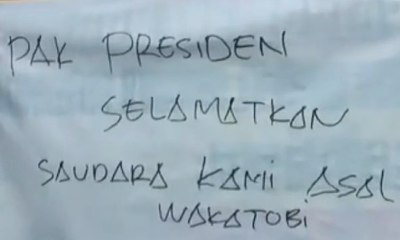 PAK PRESIDEN
SELAMATKAN
SAUDARA KAMI ASAL
WAKATOBI